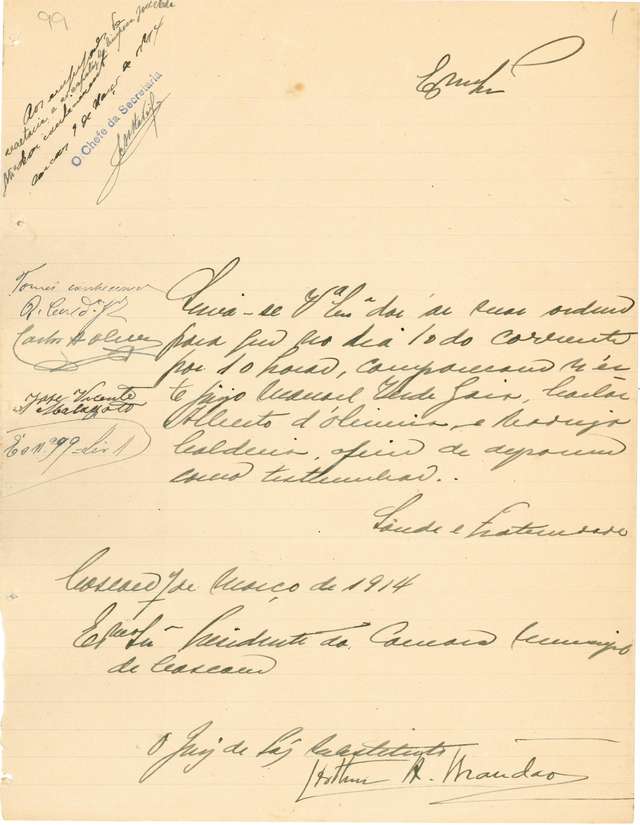 99
1
Aos
secretaria
Cascaes 9 de Março de 1914
O Chefe da Secretaria
Exmo Snr
Tomei conhecimento
Carlos A Oliver
José Vicente
É o nº 99 - Liv 1
-se Vª Exª dar as suas ordens
para que no dia 10 do corrente
por 10 horas, compareçam n'es
te juizo Manoel Gaia, Carlos
Alberto d'Oliveira, e Rodrigo
Caldeira, afim de deporem
como testemunhas..
Saude e Fraternidade
Cascaes 7 de Março de 1914
Exmo Snr Presidente da Camara Municipal
de Cascaes
O Juiz de Paz Substituto
Arthur A. Brandão